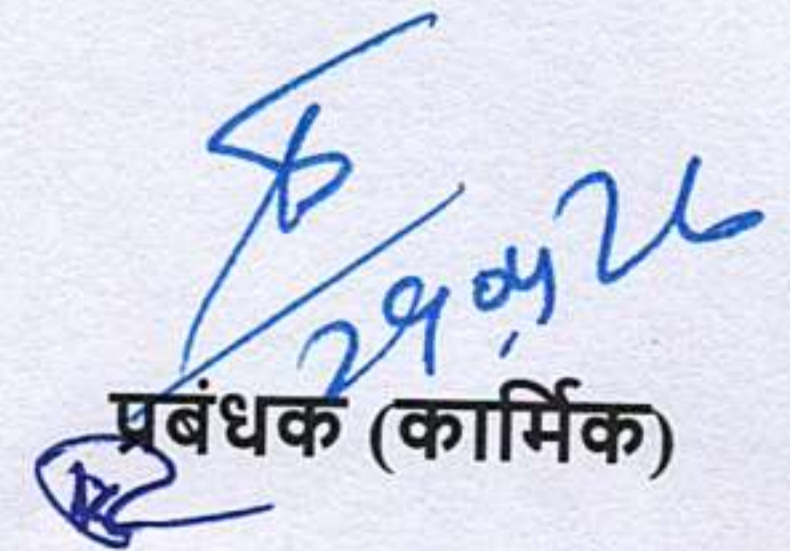 29 04 26
प्रबंधक (कार्मिक)